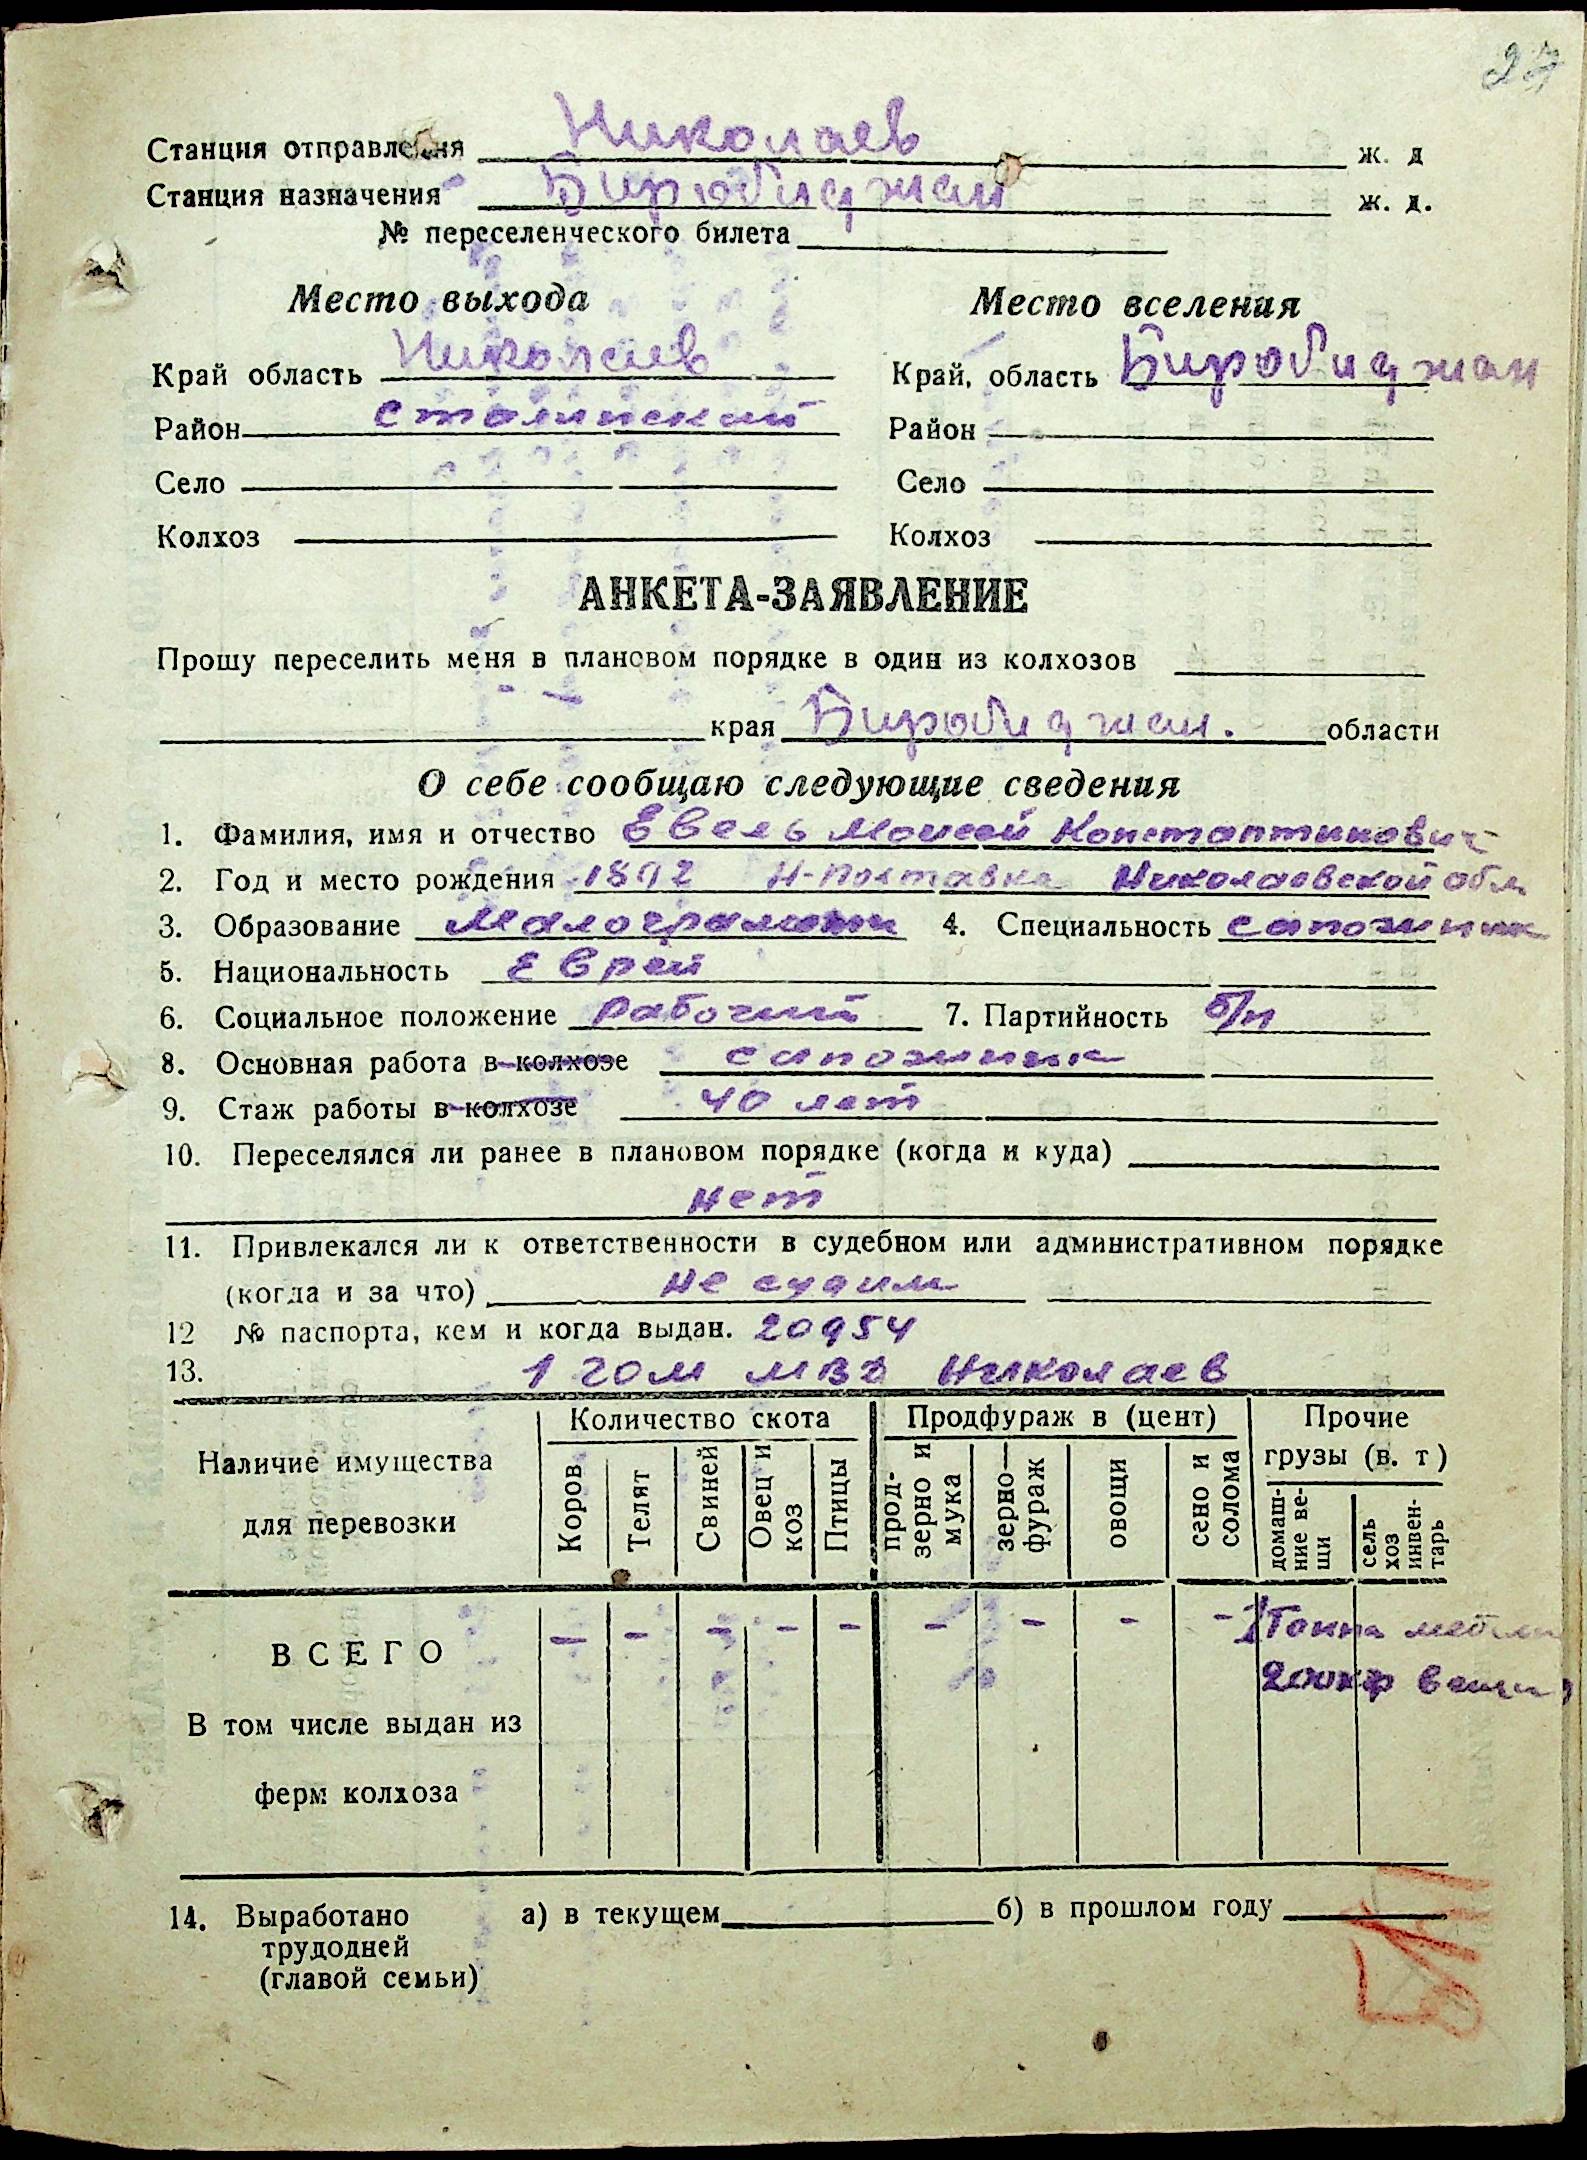 27
Станция отправления Николаев ж. д
Станция назначения Биробиджан ж. д.
№ переселенческого билета
Место выхода Место вселения
Край область Николаев Край, область Биробиджан
Район Сталинский Район
Село Село
Колхоз Колхоз
АНКЕТА-ЗАЯВЛЕНИЕ
Прошу переселить меня в плановом порядке в один из колхозов
края Биробиджан. области
О себе сообщаю следующие сведения
1. Фамилия, имя и отчество Евель Моисей Константинович
2. Год и место рождения 1892 Н-Полтавка Николаевской обл
3. Образование 4. Специальность сапожник
5. Национальность Еврей
6. Социальное положение Рабочий 7. Партийность б/п
8. Основная работа в колхозе сапожник
9. Стаж работы в колхозе 40 лет
10. Переселялся ли ранее в плановом порядке (когда и куда)
нет
11. Привлекался ли к ответственности в судебном или административном порядке
(когда и за что) не судим
12 № паспорта, кем и когда выдан. 20954
13. 1 гом мвд Николаев
Наличие имущества для перевозки Количество скота Продфураж в (цент) Прочие грузы (в. т)
Коров Телят Свиней Овец и коз Птицы прод-зерно и мука зерно—фураж овощи сено и солома домаш-ние ве-щи сель хоз инвен-тарь
ВСЕГО - - - - - - - - - 1 Тонна мебели
200 кг вещи
В том числе выдан из
ферм колхоза
14. Выработано а) в текущем б) в прошлом году
трудодней
(главой семьи)